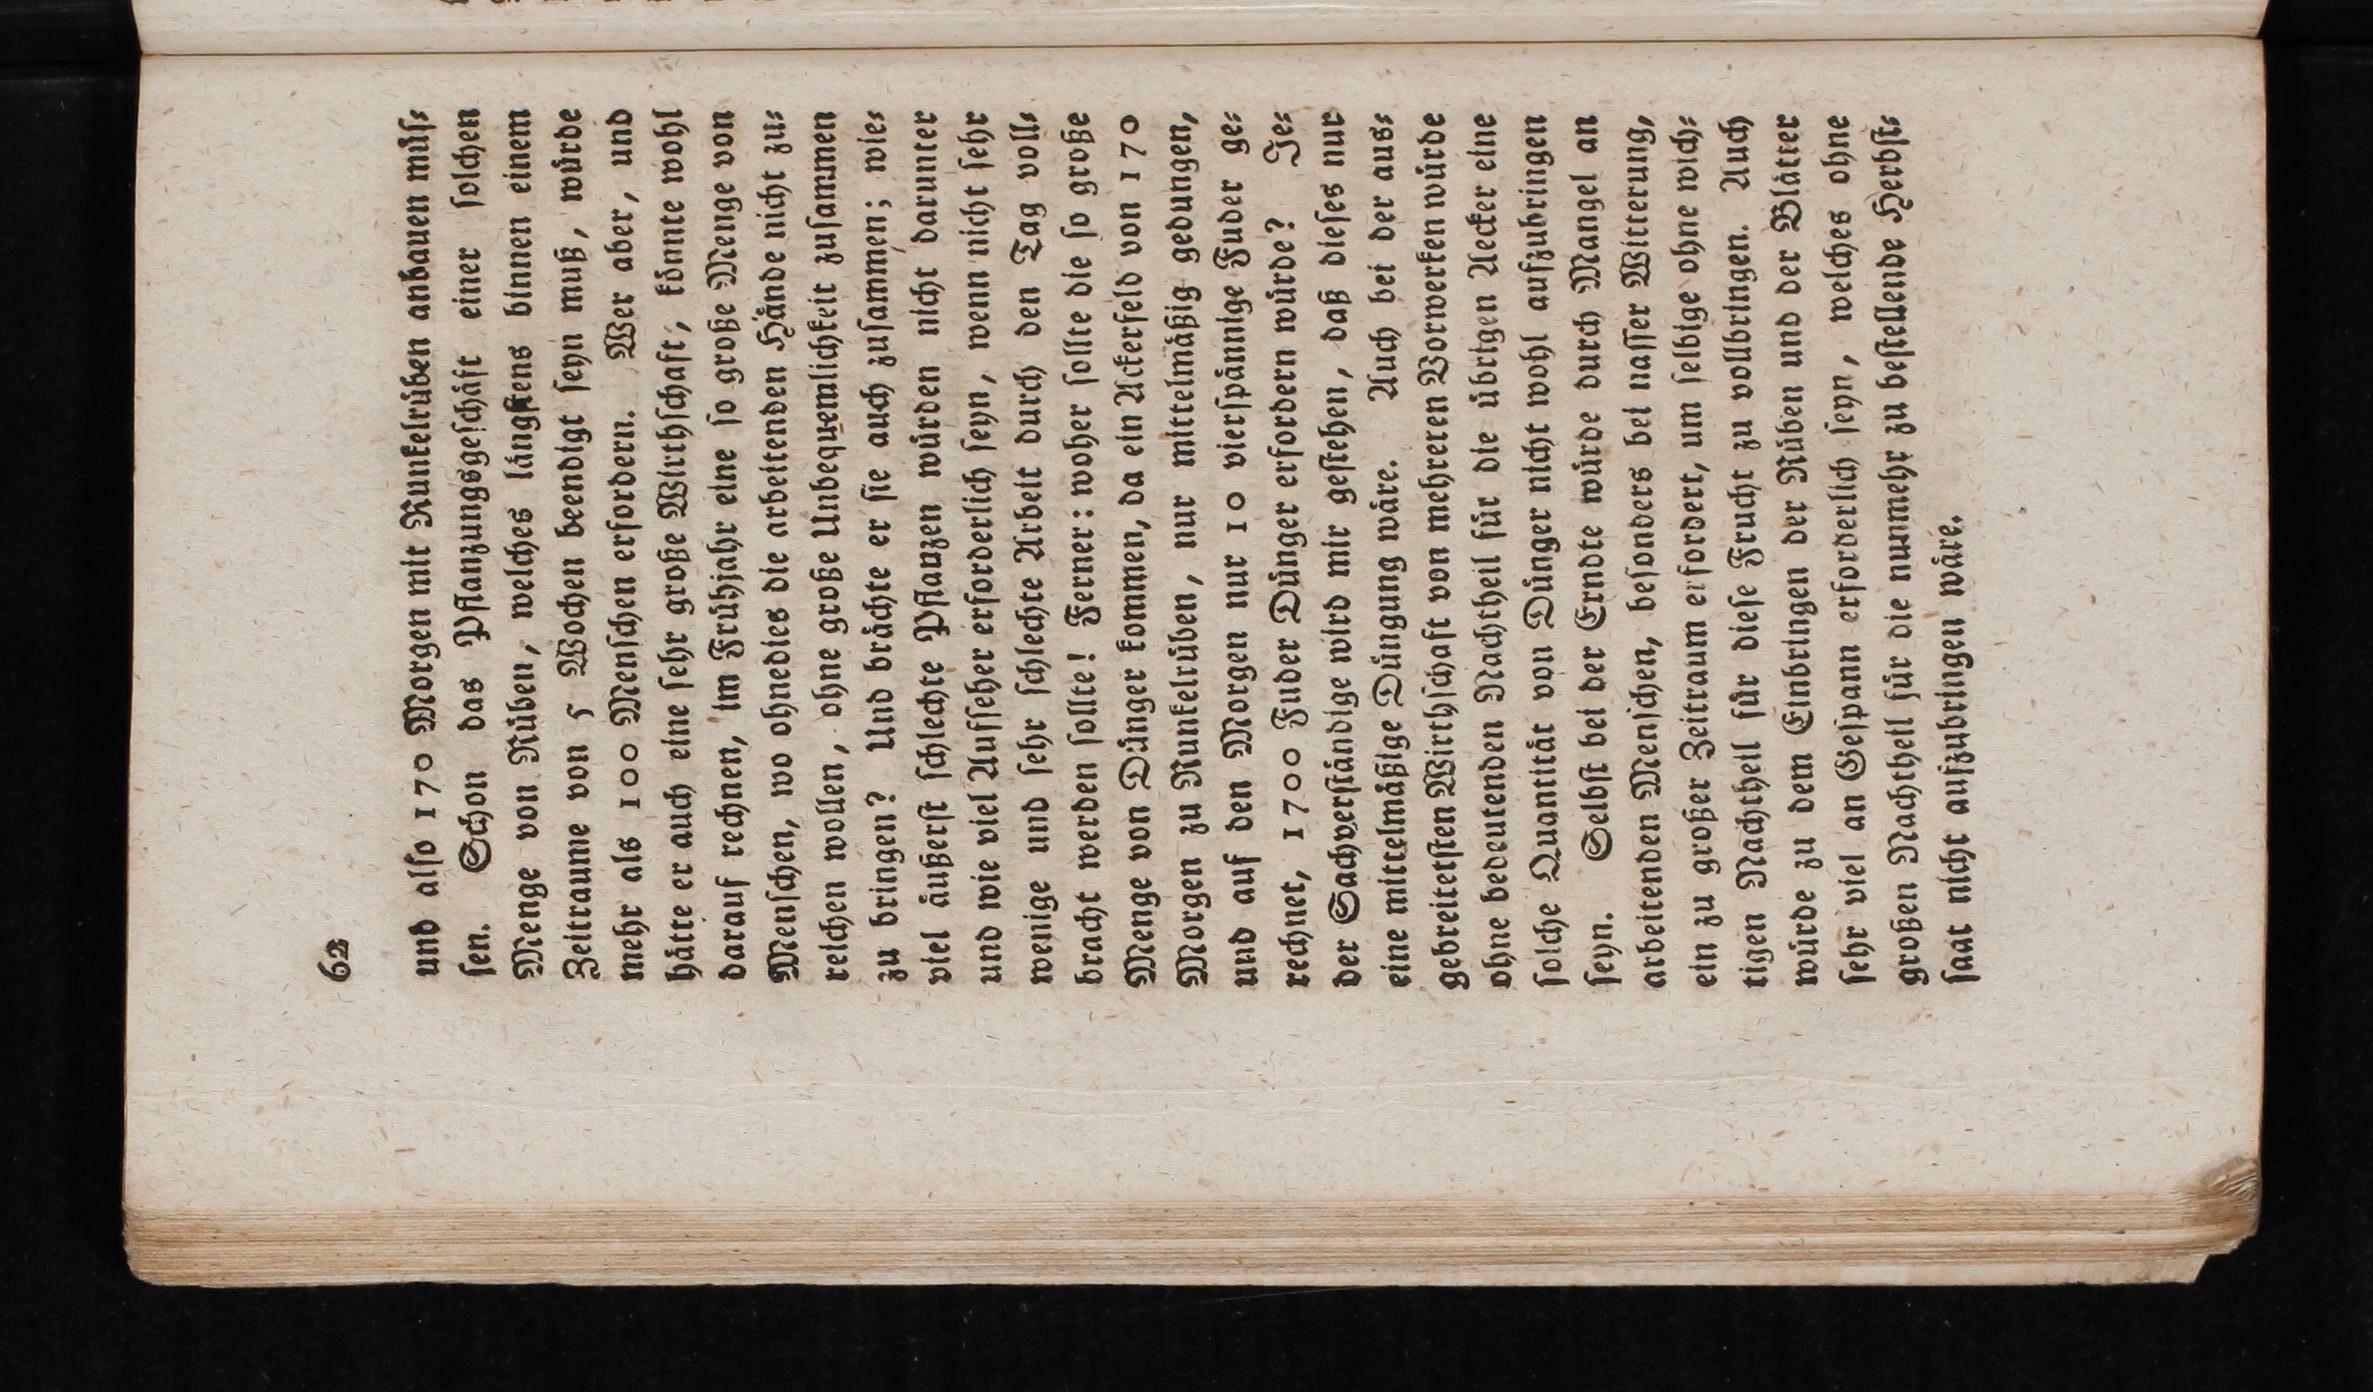 62
und alſo 170 Morgen mit Runkelruͤben anbauen muͤſ⸗
ſen. Schon das Pflanzungsgeſchaͤft einer ſolchen
Menge von Ruͤben, welches laͤngſtens binnen einem
Zeitraume von 5 Wochen beendigt ſeyn muß, wuͤrde
mehr als 100 Menſchen erfordern. Wer aber, und
haͤtte er auch eine ſehr große Wirthſchaft, koͤnnte wohl
darauf rechnen, im Fruͤhjahr eine ſo große Menge von
Menſchen, wo ohnedies die arbeitenden Haͤnde nicht zu⸗
reichen wollen, ohne große Unbequemlichkeit zuſammen
zu bringen? Und braͤchte er ſie auch zuſammen; wie⸗
viel aͤußerſt ſchlechte Pflanzen wuͤrden nicht darunter
und wie viel Aufſeher erforderlich ſeyn, wenn nicht ſehr
wenige und ſehr ſchlechte Arbeit durch den Tag voll⸗
bracht werden ſollte! Ferner: woher ſollte die ſo große
Menge von Duͤnger kommen, da ein Ackerfeld von 170
Morgen zu Runkelruͤben, nur mittelmaͤßig gedungen,
und auf den Morgen nur 10 vierſpaͤnnige Fuder ge⸗
rechnet, 1700 Fuder Duͤnger erfordern wuͤrde? Je⸗
der Sachverſtaͤndige wird mir geſtehen, daß dieſes nur
eine mittelmaͤßige Duͤngung waͤre. Auch bei der aus⸗
gebreitetſten Wirthſchaft von mehreren Vorwerken wuͤrde
ohne bedeutenden Nachtheil fuͤr die uͤbrigen Aecker eine
ſolche Quantitaͤt von Duͤnger nicht wohl aufzubringen
ſeyn. Selbſt bei der Erndte wuͤrde durch Mangel an
arbeitenden Menſchen, beſonders bei naſſer Witterung,
ein zu großer Zeitraum erfordert, um ſelbige ohne wich⸗
tigen Nachtheil fuͤr dieſe Frucht zu vollbringen. Auch
wuͤrde zu dem Einbringen der Ruͤben und der Blaͤtter
ſehr viel an Geſpann erforderlich ſeyn, welches ohne
großen Nachtheil fuͤr die nunmehr zu beſtellende Herbſt⸗
ſaat nicht aufzubringen waͤre.